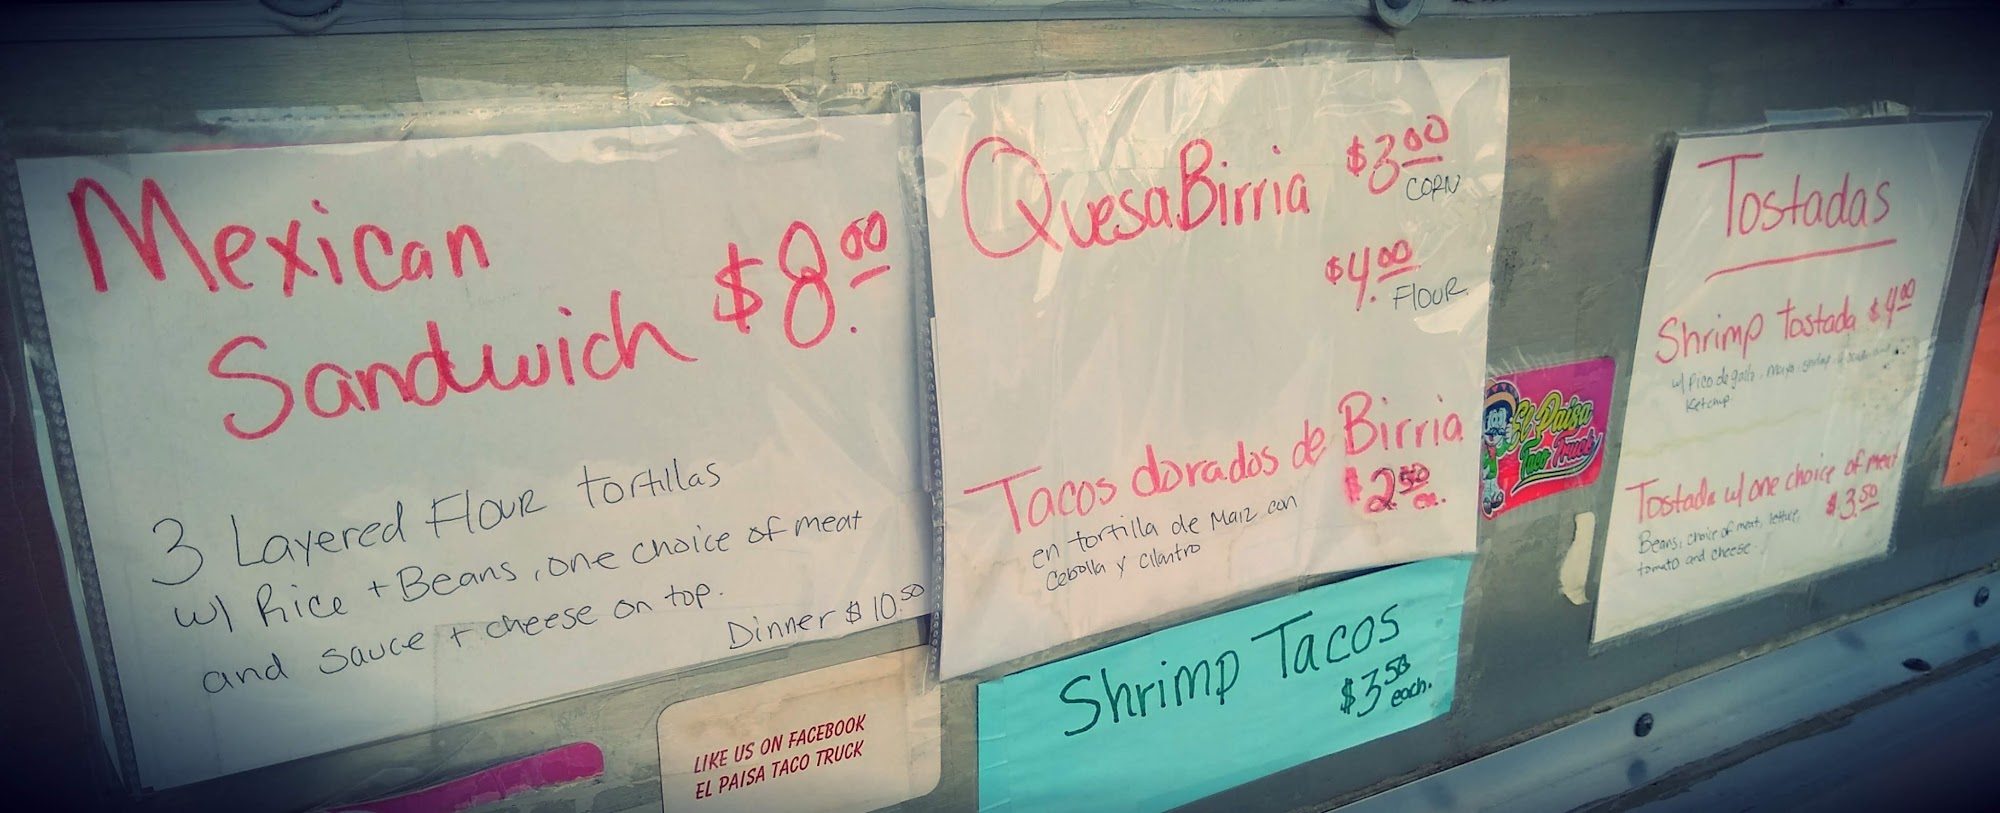 Mexican
Sandwich $8.00
3 Layered Flour tortillas
w/ Rice + Beans, one choice of meat
and sauce + cheese on top.
Dinner $10.50
QuesaBirria $3.00
CORN
$4.00
FLOUR
Tacos dorados de Birria
$2.50 ea.
en tortilla de Maiz con
Cebolla y Cilantro
Shrimp Tacos
$3.50 each.
LIKE US ON FACEBOOK
EL PAISA TACO TRUCK
El Paisa
Taco Truck
Tostadas
Shrimp tostada $4.00
w/ Pico de gallo, mayo, shrimp,
Ketchup.
Tostada w/ one choice of meat
$3.50
Beans, choice of meat, lettuce,
tomato and cheese.